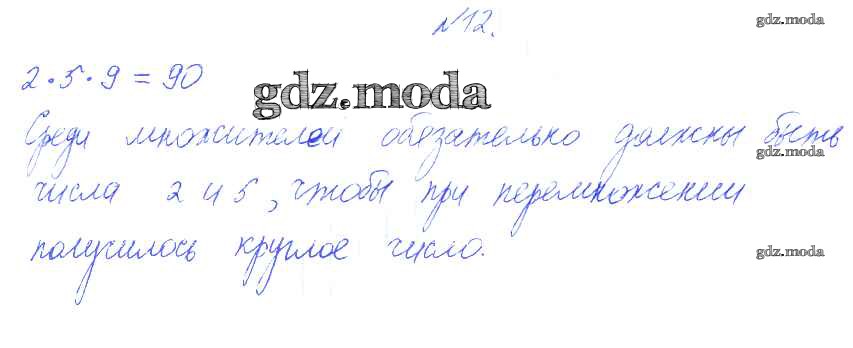 №12.
gdz.moda
2·5·9=90
gdz.moda
Среди множителей обязательно должны быть
gdz.moda
числа 2 и 5, чтобы при перемножении
получилось круглое число.
gdz.moda